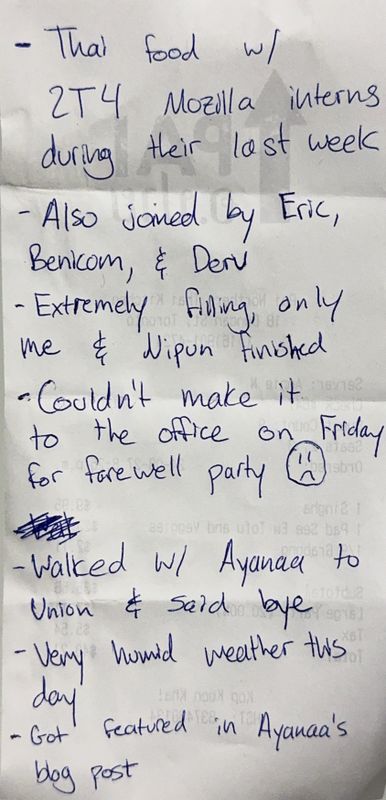 - Thai food w/
2T4 Mozilla interns
during their last week
- Also joined by Eric,
Benicom, & Derv
- Extremely filling, only
me & Nipun finished
- Couldn't make it
to the office on Friday
for farewell party ☹
- Walked w/ Ayanaa to
Union & said bye
- Very humid weather this
day
- Got featured in Ayanaa's
blog post